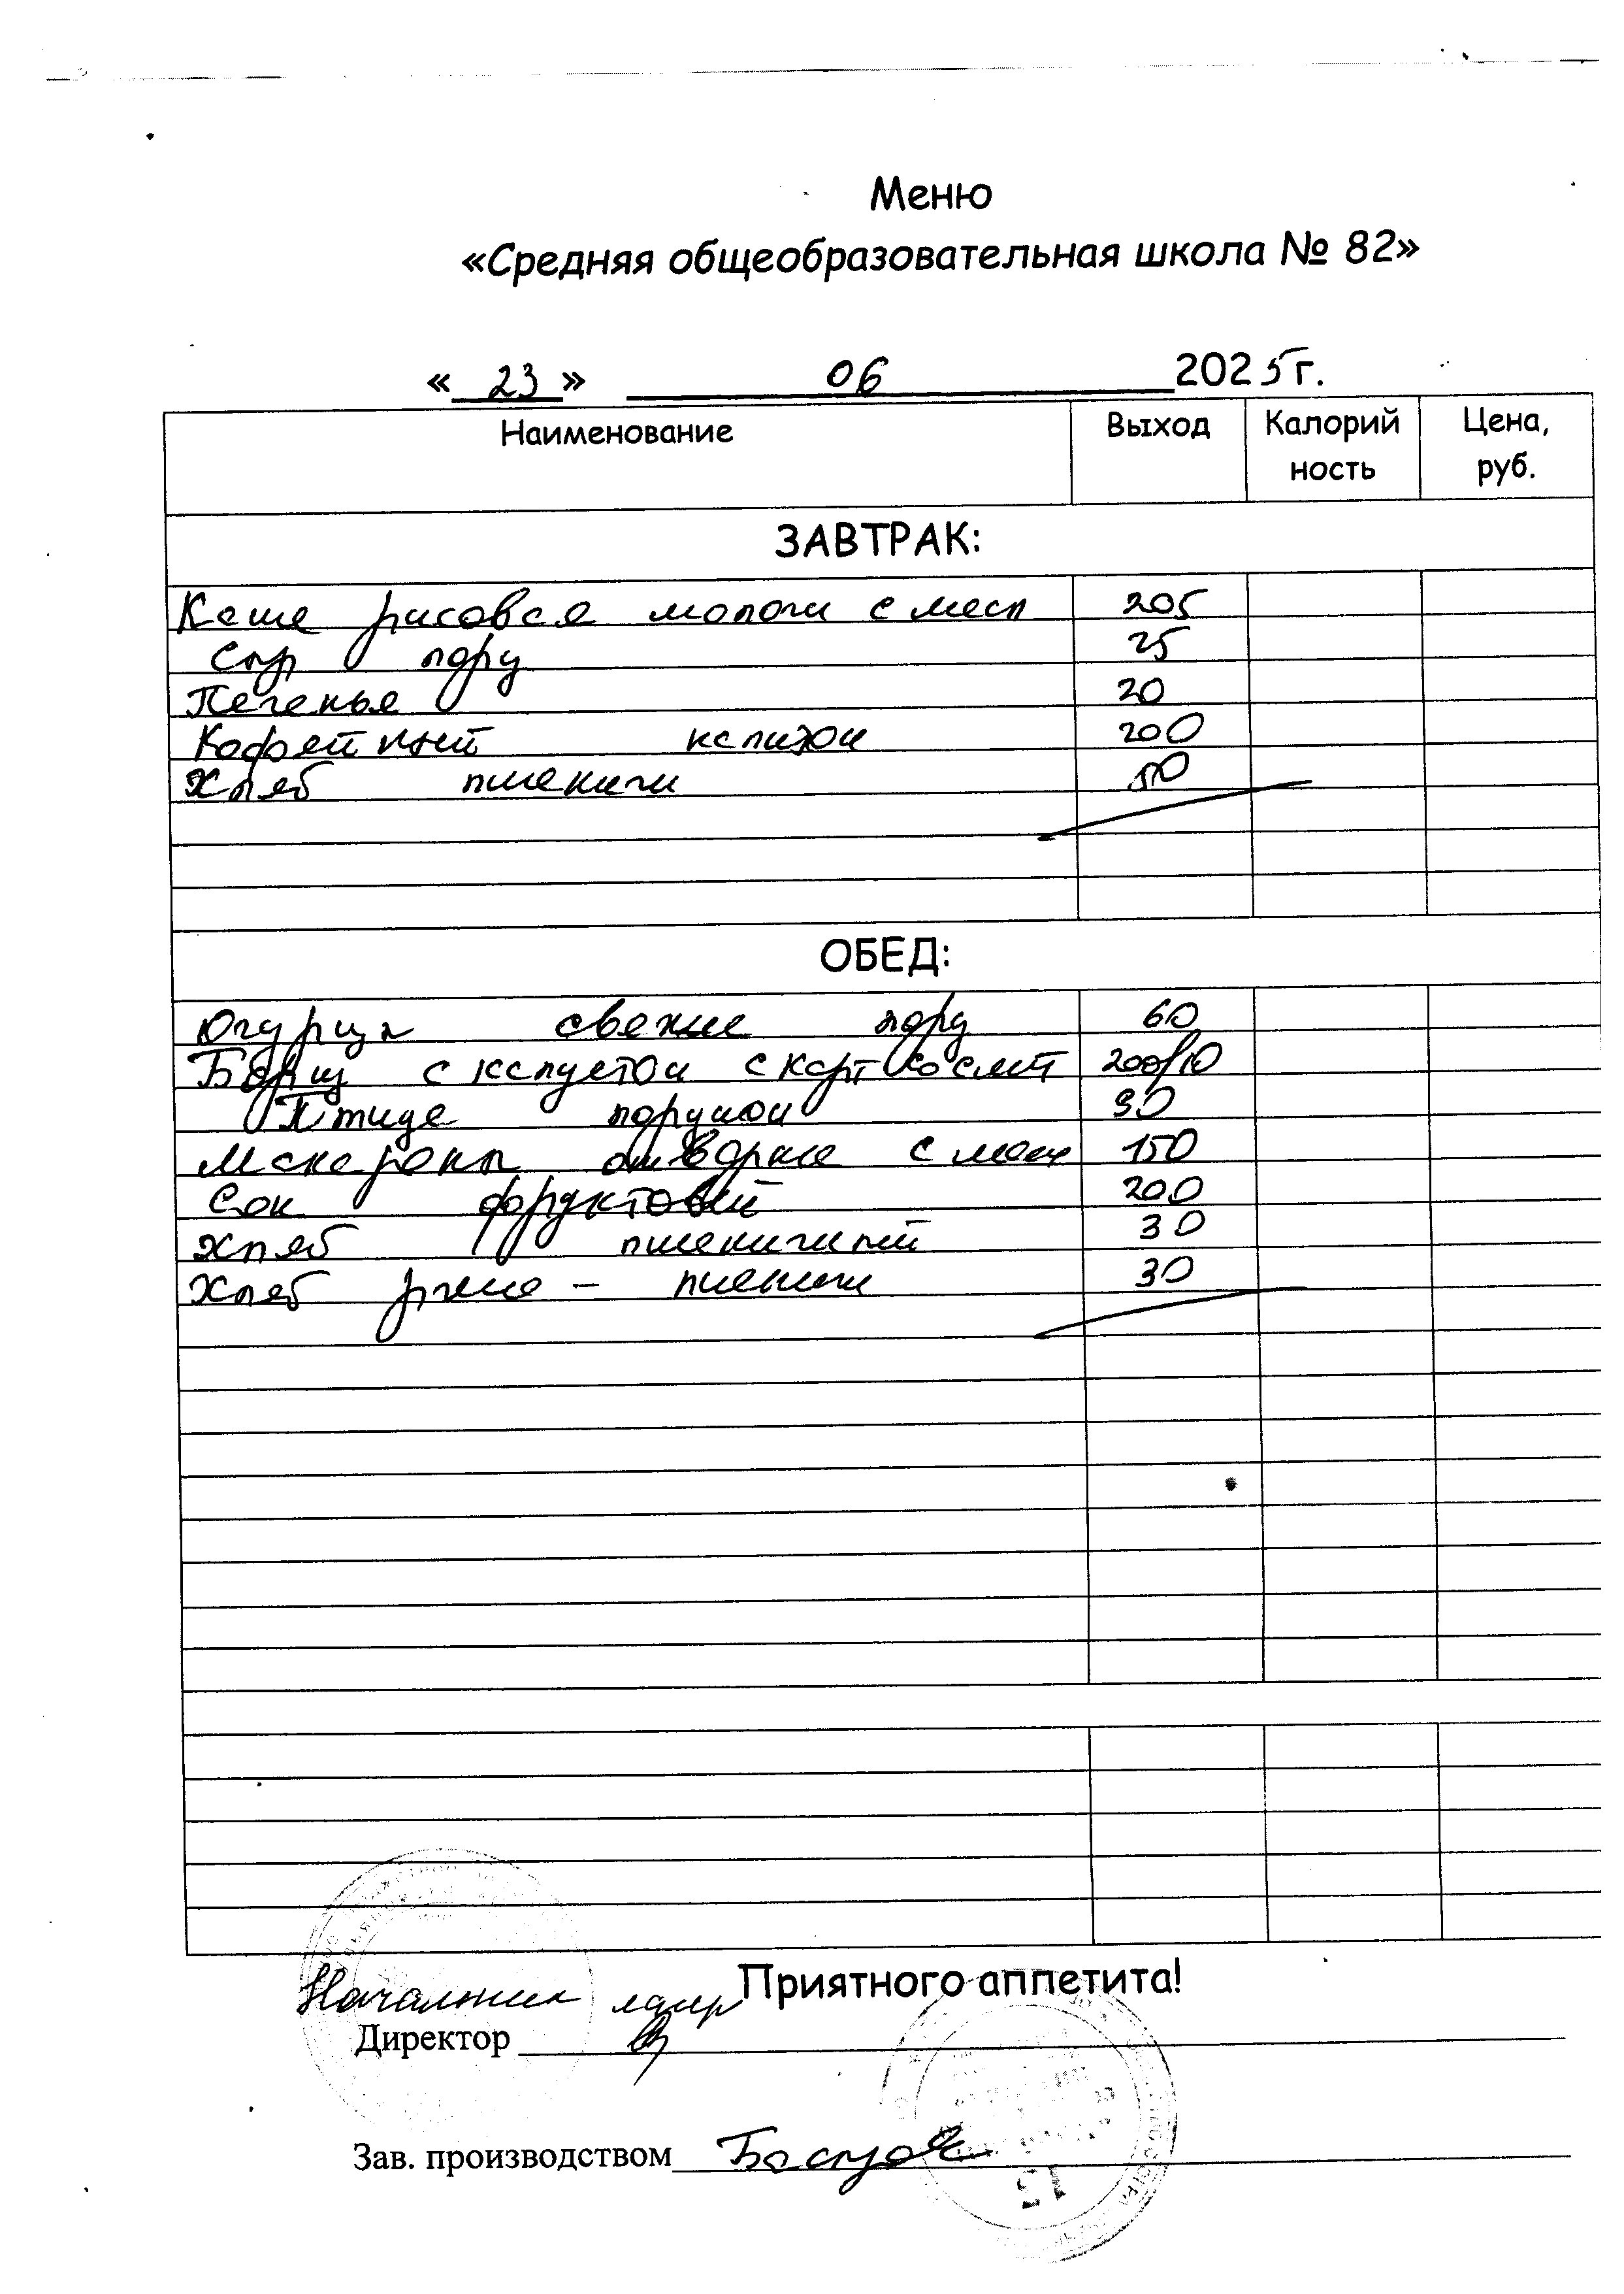 Меню
«Средняя общеобразовательная школа № 82»
« 23 » 06 2025 г.
Наименование Выход Калорий ность Цена, руб.
ЗАВТРАК:
Каша рисовая молочн с масл 205
Сыр порц 25
Печенье 20
Кофейный напиток 200
Хлеб пшеничн
ОБЕД:
Огурцы свежие порц 60
Борщ с капустой с карт со смет 200/10
Птица порцион 90
Макароны отварные с масл 150
Сок фруктовый 200
Хлеб пшеничный 30
Хлеб ржано - пшенич 30
Приятного аппетита!
Начальник лагер
Директор
Зав. производством